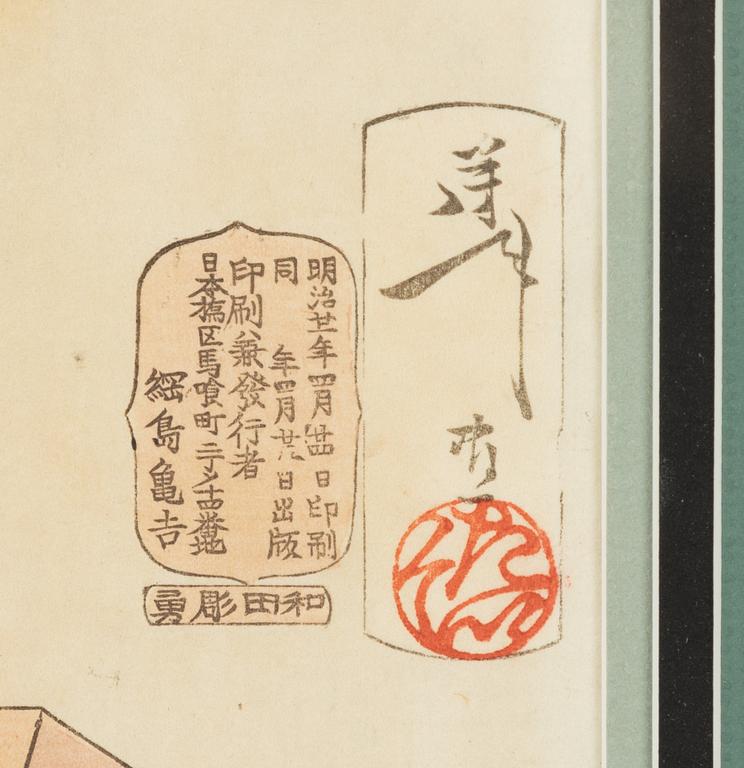 芳年
明治廿一年四月廿四日印刷
同 年四月廿八日出版
印刷兼發行者
日本橋区馬喰町二丁目十四番地
綱島亀吉
和田彫勇